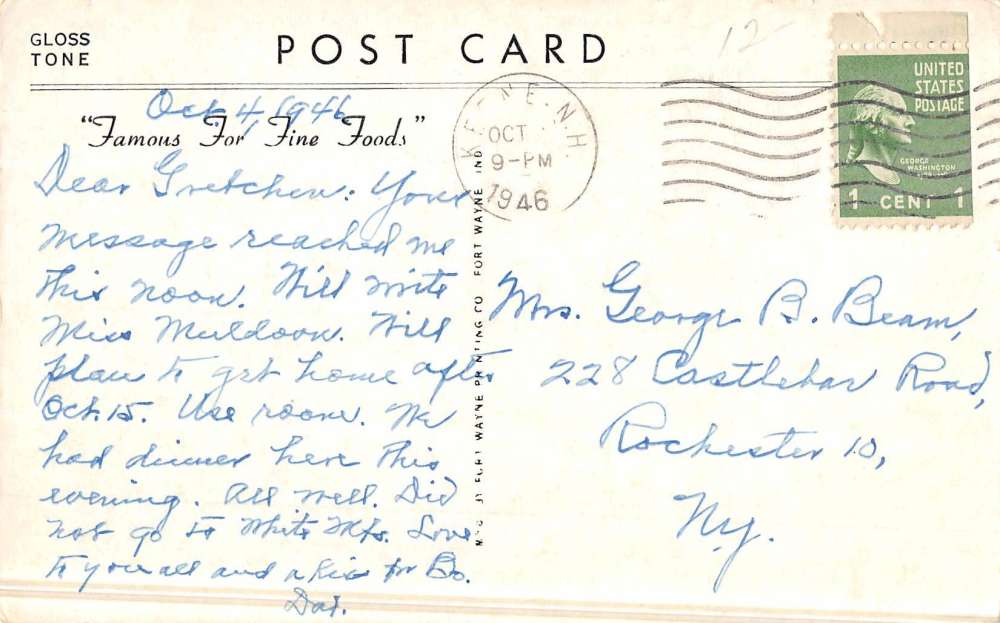 GLOSS
TONE
POST CARD
12-
Oct. 4, 1946
"Famous For Fine Foods"
Dear Gretchen: Your
message reached me
this noon. Will write
Miss Muldoon. Will
plan to get home after
Oct. 15. Use room. We
had dinner here this
evening. All well. Did
not go to White Mts. Love
to you all and a kiss for Bo.
Dad.
KEENE, N.H.
OCT
9-PM
1946
UNITED
STATES
POSTAGE
GEORGE
WASHINGTON
1 CENT 1
FORT WAYNE PRINTING CO FORT WAYNE IND
Mrs. George B. Beam,
228 Castlebar Road,
Rochester 10,
N.Y.